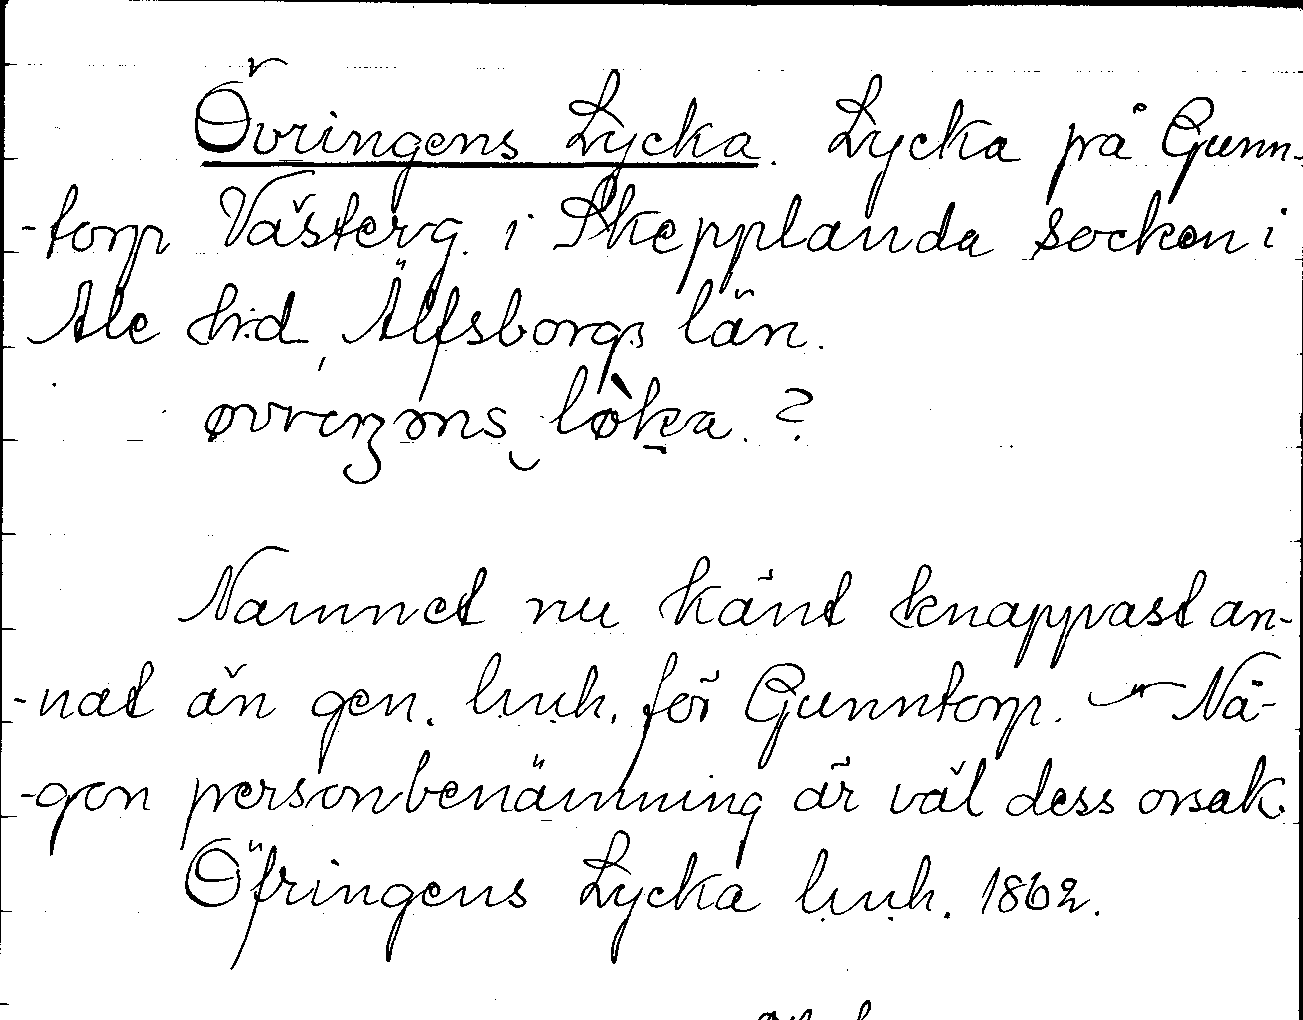 Övringens Lycka. Lycka på Gunn-
-torp Västerg. i Skepplanda socken i
Ale hrd, Älfsborgs län.
løka. ?
Namnet nu känt knappast an-
-nat än gen. l.u.h. för Gunntorp. — Nå-
-gon personbenämning är väl dess orsak.
Öfringens Lycka l.u.h. 1862.